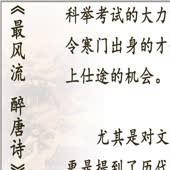 《最风流 醉唐诗》
科举考试的大力
令寒门出身的才
上仕途的机会。
尤其是对文
更是提到了历代